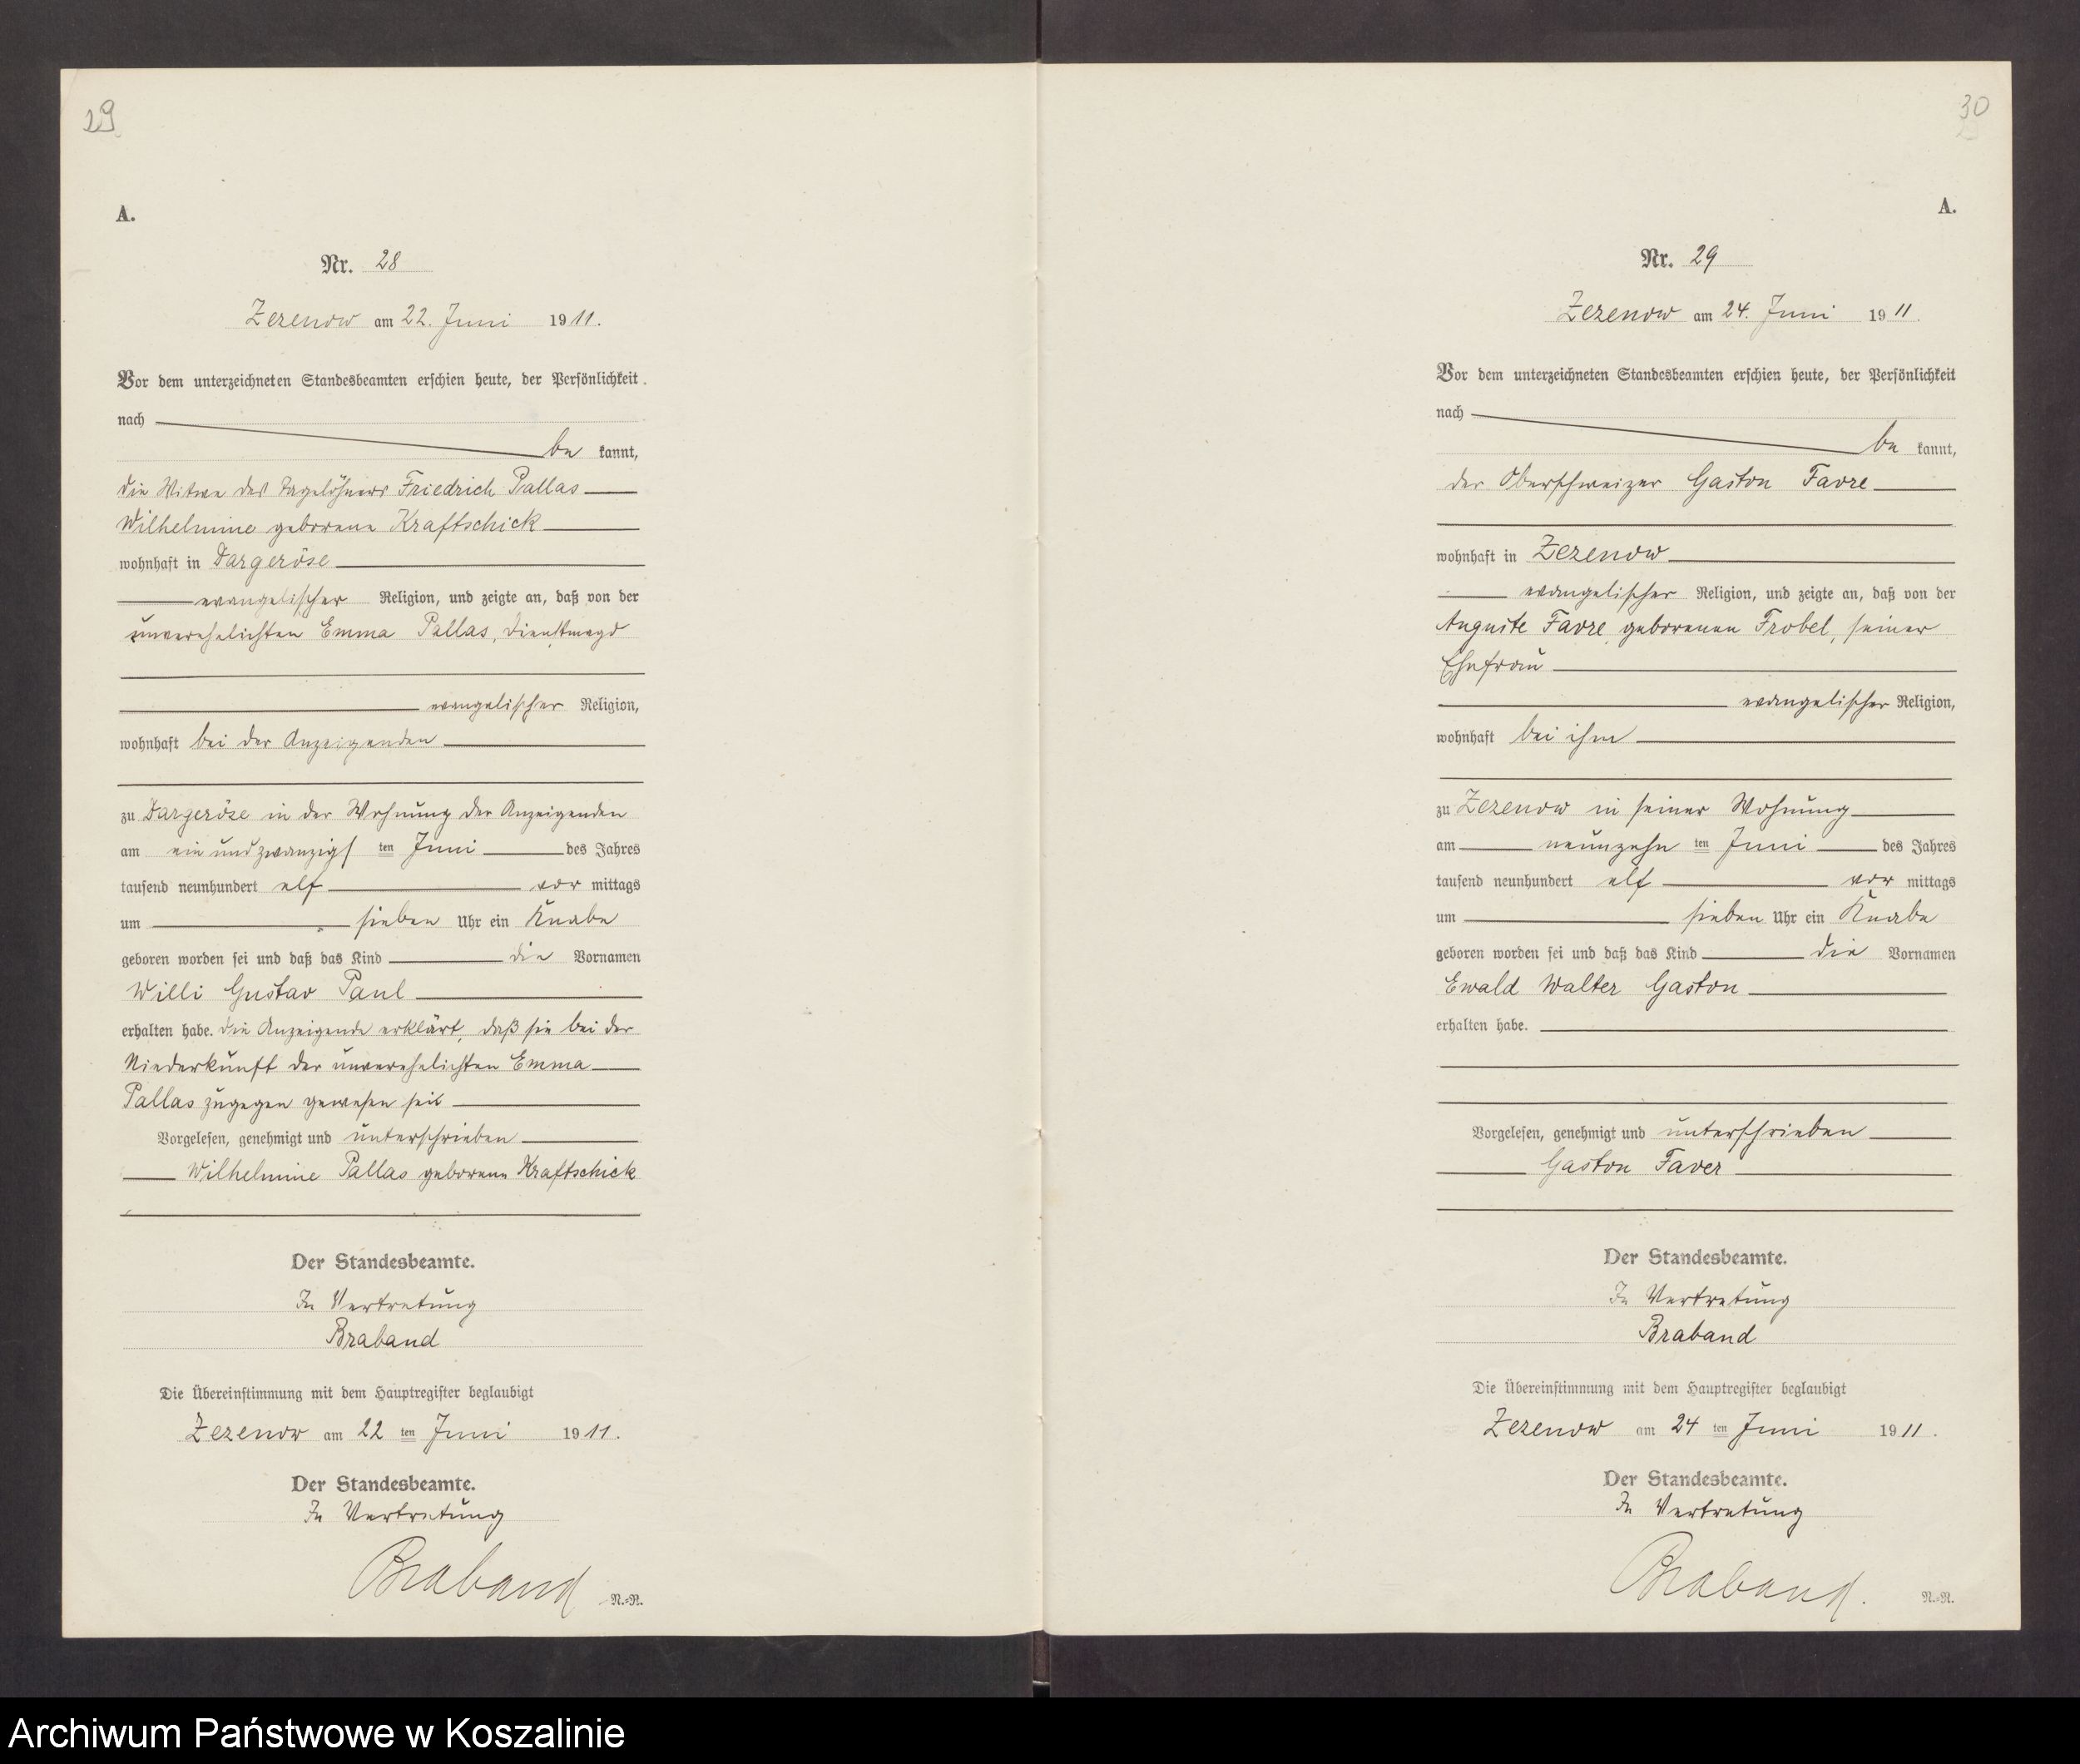 29
A.
Nr. 28
Zezenow am 22. Juni 1911.
Vor dem unterzeichneten Standesbeamten erschien heute, der Persönlichkeit
nach
be kannt,
die Witwe des Tagelöhners Friedrich Pallas
Wilhelmine geborene Kraftschick
wohnhaft in Dargeröse
evangelischer Religion, und zeigte an, daß von der
unverehelichten Emma Pallas, Dienstmagd
evangelischer Religion,
wohnhaft bei der Anzeigenden
zu Dargeröse in der Wohnung der Anzeigenden
am ein und zwanzigs ten Juni des Jahres
tausend neunhundert elf vor mittags
um sieben Uhr ein Knabe
geboren worden sei und daß das Kind die Vornamen
Willi Gustav Paul
erhalten habe. Die Anzeigende erklärt, daß sie bei der
Niederkunft der unverehelichten Emma
Pallas zugegen gewesen sei
Vorgelesen, genehmigt und unterschrieben
Wilhelmine Pallas geborene Kraftschick
Der Standesbeamte.
In Vertretung
Braband
Die Übereinstimmung mit dem Hauptregister beglaubigt
Zezenow am 22 ten Juni 1911.
Der Standesbeamte.
In Vertretung
Braband
N.=R.
30
A.
Nr. 29
Zezenow am 24. Juni 1911.
Vor dem unterzeichneten Standesbeamten erschien heute, der Persönlichkeit
nach
be kannt,
der Oberschweizer Gaston Favre
wohnhaft in Zezenow
evangelischer Religion, und zeigte an, daß von der
Auguste Favre, geborenen Frobel, seiner
Ehefrau
evangelischer Religion,
wohnhaft bei ihm
zu Zezenow in seiner Wohnung
am neunzehn ten Juni des Jahres
tausend neunhundert elf vor mittags
um sieben Uhr ein Knabe
geboren worden sei und daß das Kind die Vornamen
Ewald Walter Gaston
erhalten habe.
Vorgelesen, genehmigt und unterschrieben
Gaston Faver
Der Standesbeamte.
In Vertretung
Braband
Die Übereinstimmung mit dem Hauptregister beglaubigt
Zezenow am 24 ten Juni 1911.
Der Standesbeamte.
In Vertretung
Braband.
N.=R.
Archiwum Państwowe w Koszalinie